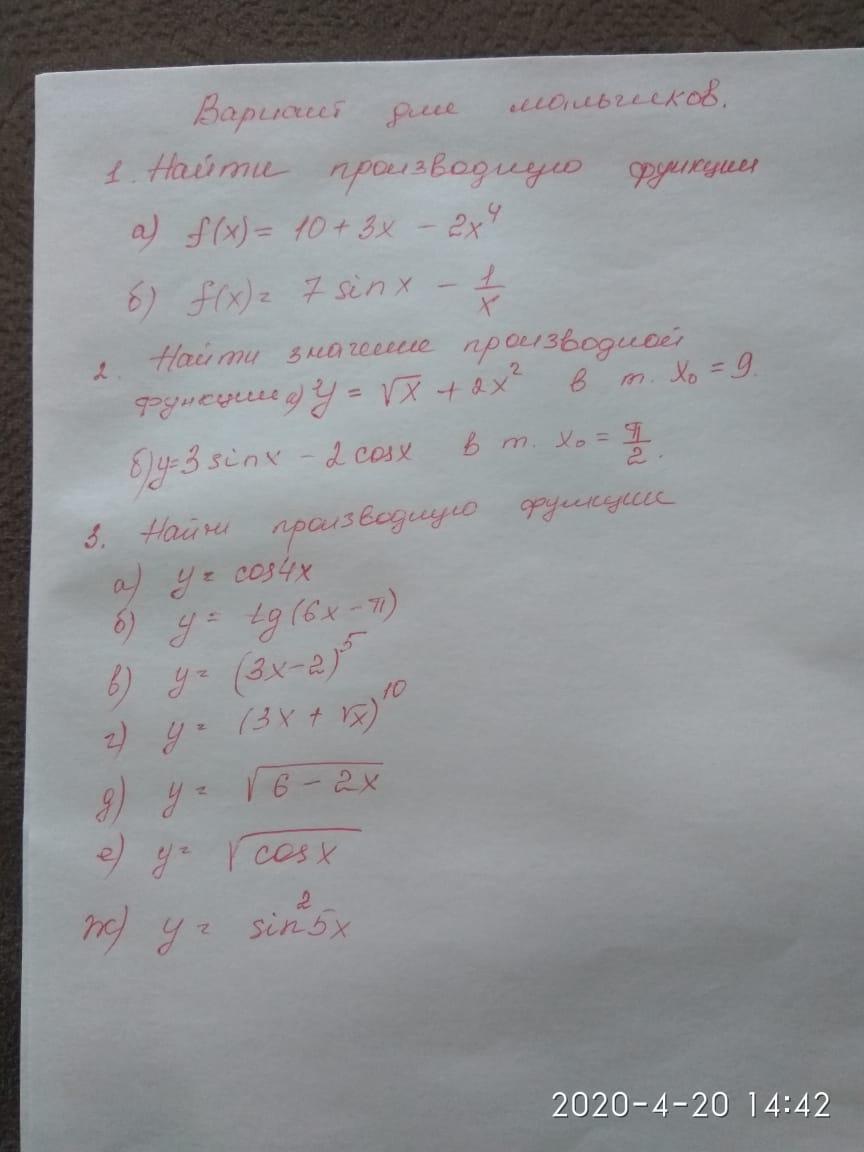 Вариант для мальчиков.
1. Найти производную функции
а) f(x) = 10 + 3x - 2x⁴
б) f(x) = 7 sin x - 1/x
2. Найти значение производной
функции а) y = √x + 2x² в т. x₀ = 9.
б) y = 3 sin x - 2 cos x в т. x₀ = π/2.
3. Найти производную функции
а) y = cos 4x
б) y = tg (6x - π)
в) y = (3x - 2)⁵
г) y = (3x + √x)¹⁰
д) y = √(6 - 2x)
е) y = √(cos x)
ж) y = sin² 5x
2020-4-20 14:42